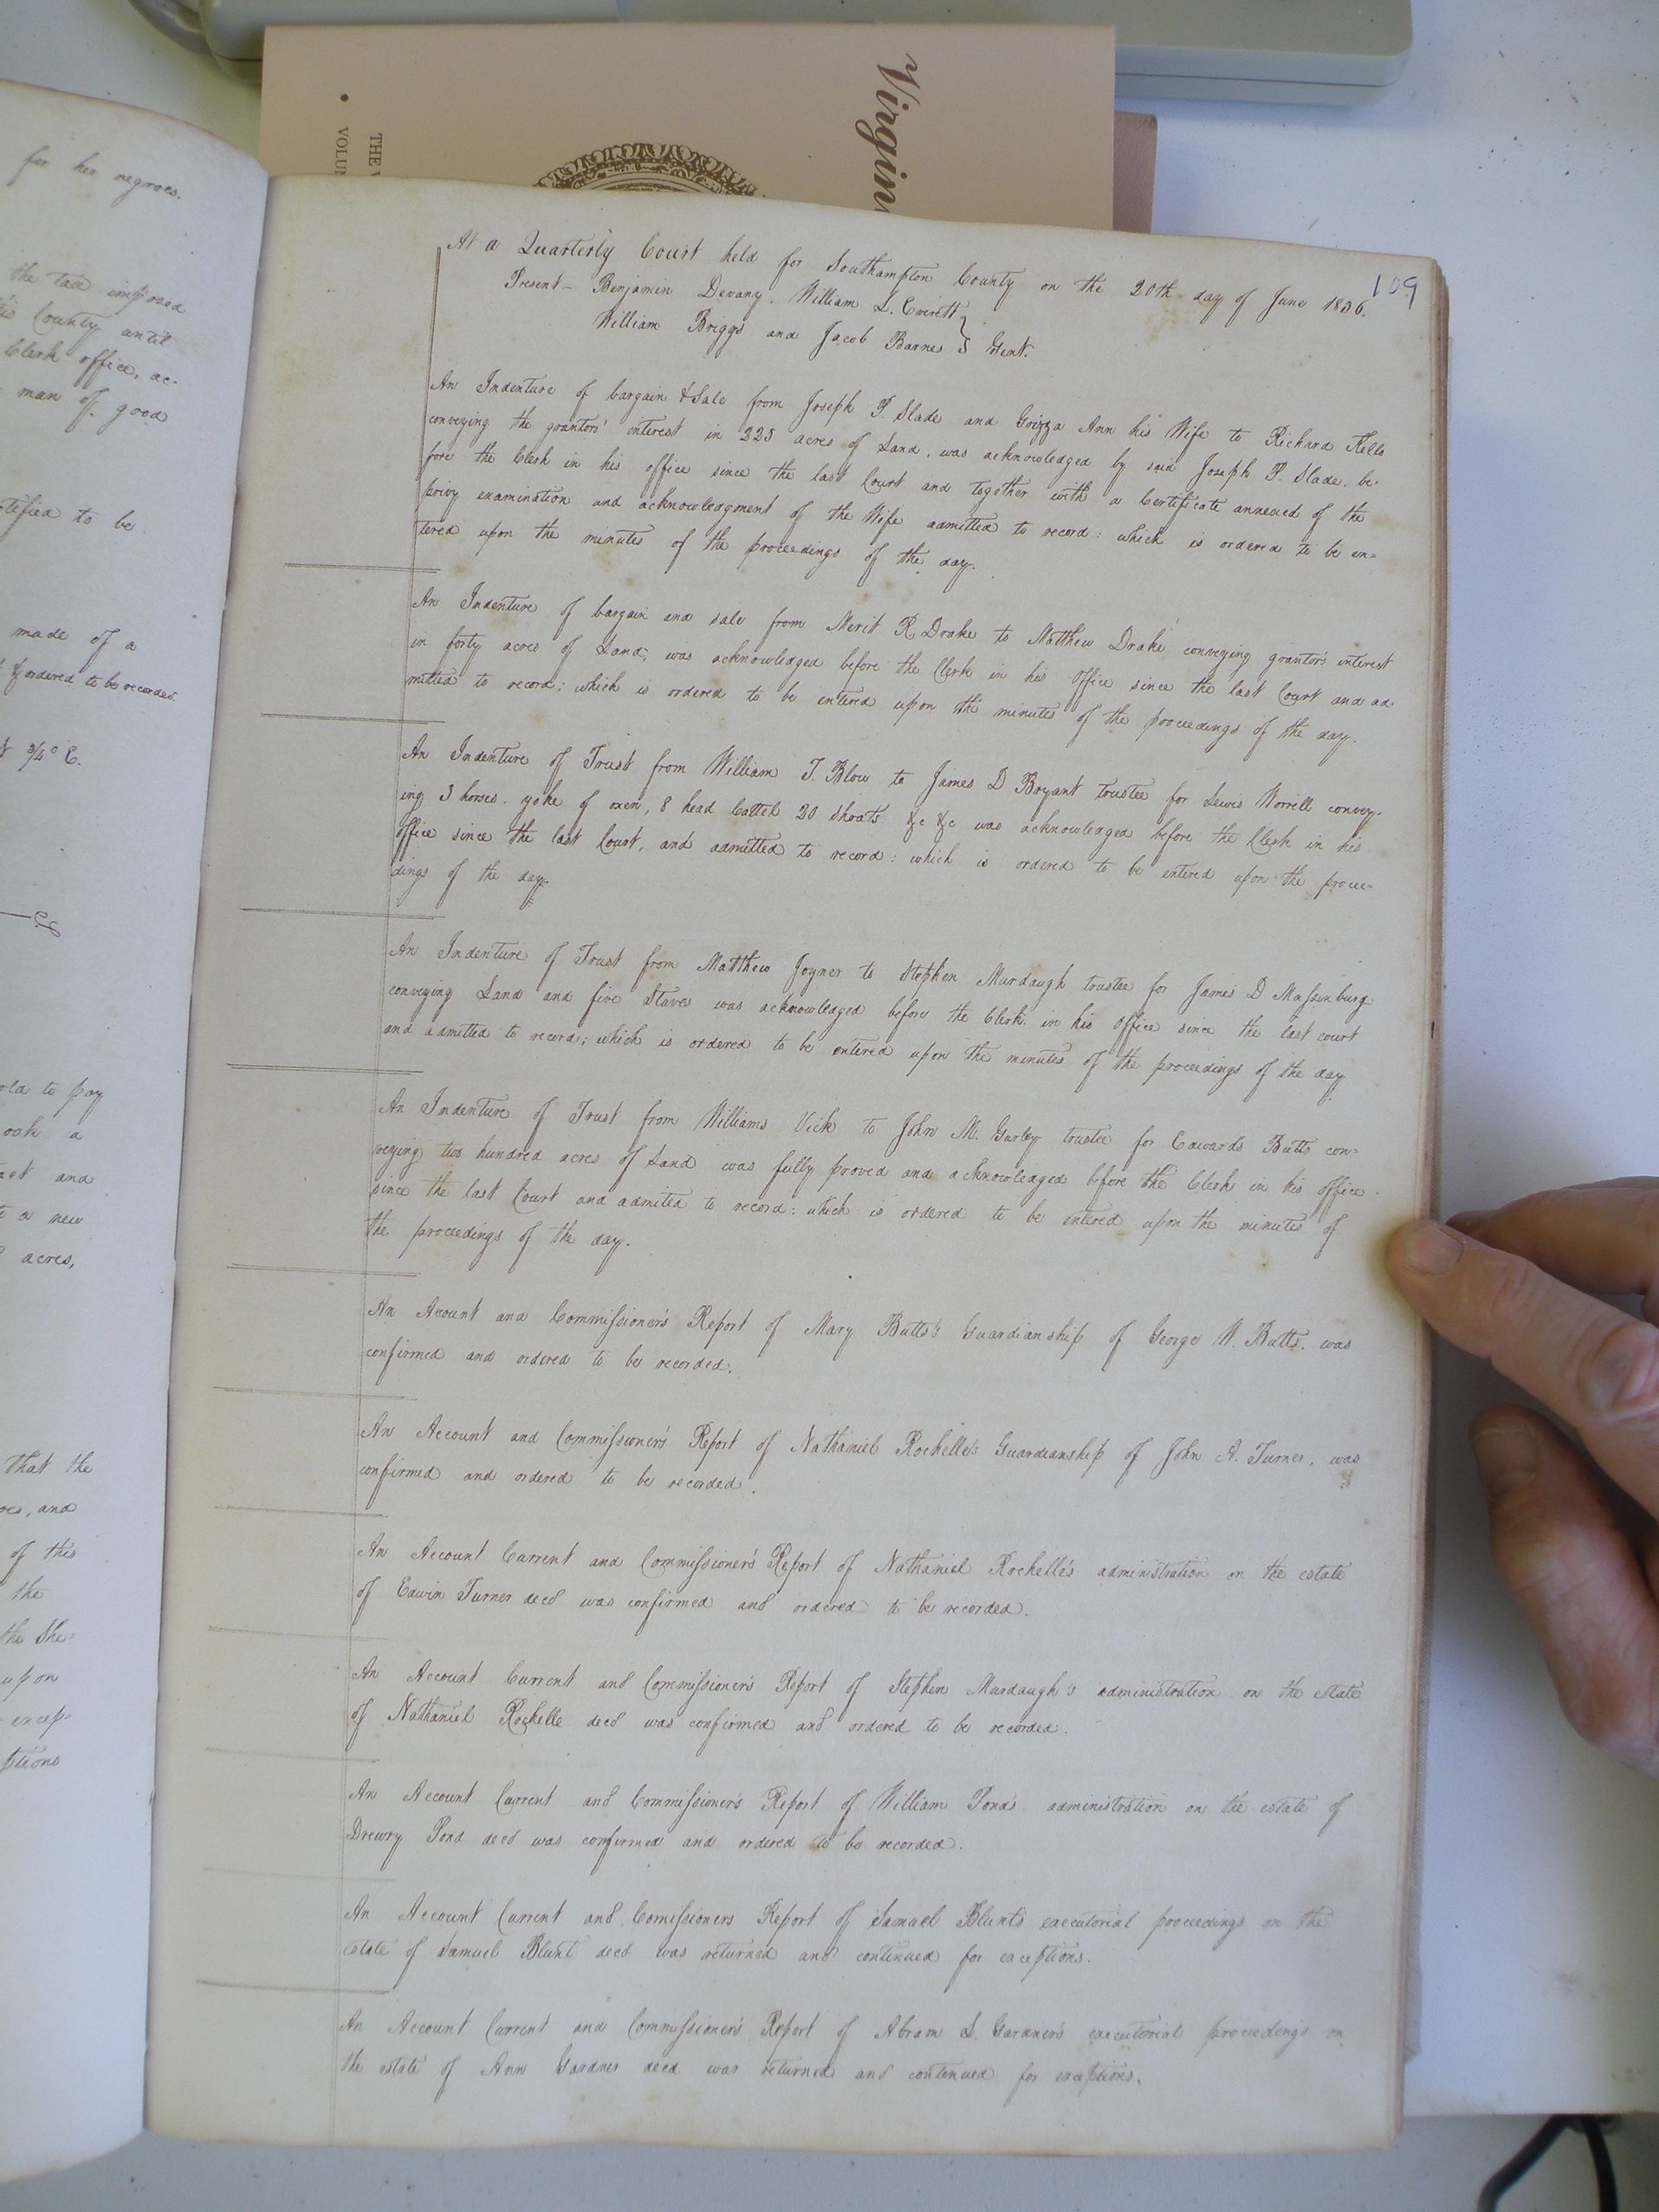 Virgin
THE V
• VOLU
for her negroes.
the tax imposed
County until
Clerk office, ac-
man of good
to be
made of a
& ordered to be recorded.
3/4 ° E.
to pay
a
and
a new
acres,
That the
and
of this
the
the She-
upon
excep-
ptions
159
At a Quarterly Court held for Southampton County on the 20th day of June 1836.
Present - Benjamin Devany, William L. Everett
William Briggs and Jacob Barnes } Gent.
An Indenture of bargain & Sale from Joseph P. Slade and Grizza Ann his Wife to Richard Kello
conveying the grantors' interest in 225 acres of Land, was acknowledged by said Joseph P. Slade, be-
fore the Clerk in his office since the last Court and together with a Certificate annexed of the
privy examination and acknowledgment of the Wife admitted to record: which is ordered to be en=
tered upon the minutes of the proceedings of the day.
An Indenture of bargain and sale from Merit R. Drake to Matthew Drake conveying grantor's interest
in forty acres of Land; was acknowledged before the Clerk in his Office since the last Court and ad-
mitted to record; which is ordered to be entered upon the minutes of the proceedings of the day.
An Indenture of Trust from William T. Blow to James D Bryant trustee for Lewis Worrell convey-
ing 3 horses, yoke of oxen, 8 head Cattel 20 Shoats &c &c was acknowledged before the Clerk in his
office since the last Court, and admitted to record: which is ordered to be entered upon the procee=
dings of the day.
An Indenture of Trust from Matthew Joyner to Stephen Murdaugh trustee for James D Massenburg
conveying Land and five Slaves was acknowledged before the Clerk in his Office since the last court
and admitted to record; which is ordered to be entered upon the minutes of the proceedings of the day
An Indenture of Trust from Williams Vick to John M. Gurley trustee for Edwards Butts con=
veying two hundred acres of Land was fully proved and acknowledged before the Clerk in his office
since the last Court and admited to record: which is ordered to be entered upon the minutes of
the proceedings of the day.
An Acount and Commissioner's Report of Mary Butts's Guardianship of George W. Butts, was
confirmed and ordered to be recorded.
An Account and Commissioner's Report of Nathaniel Rochelle's Guardianship of John A. Turner, was
confirmed and ordered to be recorded.
An Account Current and Commissioner's Report of Nathaniel Rochelle's administration on the estate
of Edwin Turner decd was confirmed and ordered to be recorded.
An Account Current and Commissioner's Report of Stephen Murdaugh's administration on the estate
of Nathaniel Rochelle decd was confirmed and ordered to be recorded.
An Account Current and Commissioner's Report of William Pond's administration on the estate of
Drewry Pond decd was confirmed and ordered to be recorded.
An Account Current and Comissioners Report of Samuel Blunt's executorial proceedings on the
estate of Samuel Blunt decd was returned and continued for exceptions.
An Account Current and Commissioner's Report of Abram L. Gardner's executorial proceedings on
the estate of Ann Gardner decd was returned and continued for exceptions.